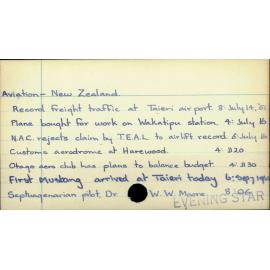 Aviation - New Zealand.
Record freight traffic at Taieri airport. 8: July 14,
Plane bought for work on Wakatipu station 4: July 16
N.A.C. rejects claim by T.E.A.L to airlift record. 6: July
Customs aerodrome at Harewood. 4:
Otago aero club has plans to balance budget. 4:
First Mustang arrived at Taieri today 6: Sep
Septuagenarian pilot, Dr W.W. Moore. 8:
EVENING STAR